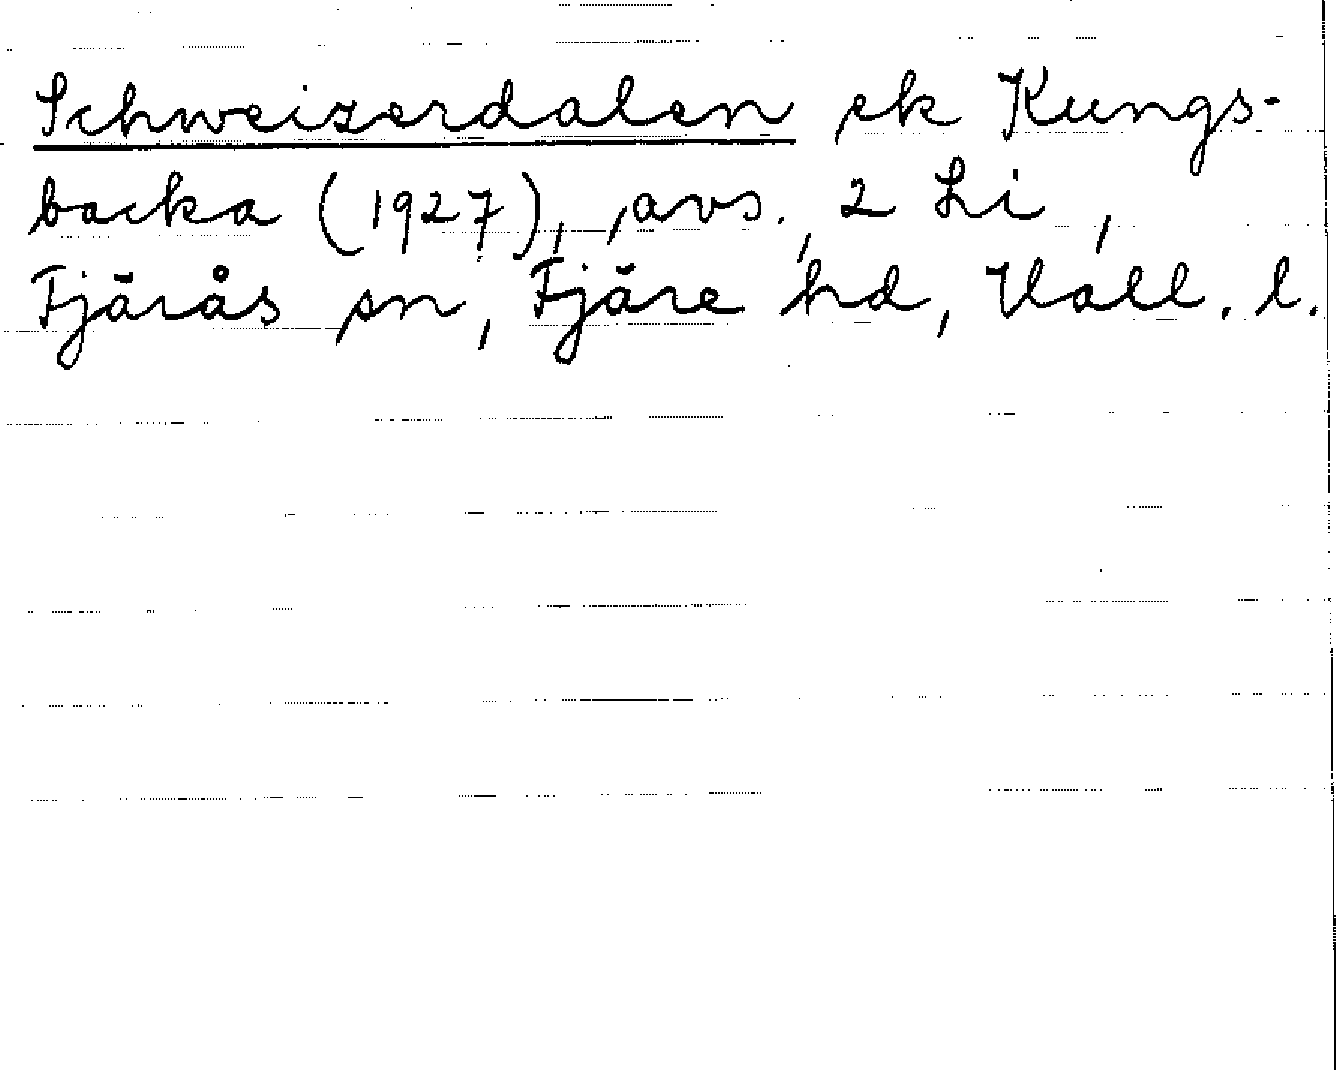 Schweizerdalen ek Kungs-
backa (1927), avs. 2 Li,
Fjärås sn, Fjäre hd, Hall. l.